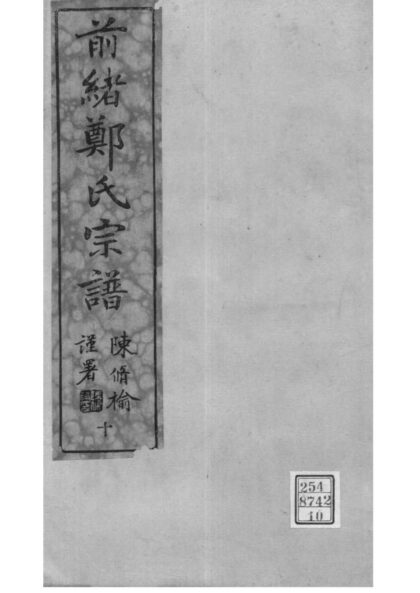 前緒鄭氏宗譜
陳脩榆
謹署
十
254
8742
10